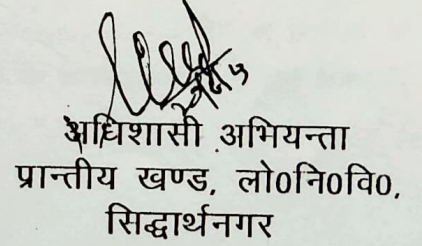 अधिशासी अभियन्ता
प्रान्तीय खण्ड, लो0नि0वि0,
सिद्धार्थनगर